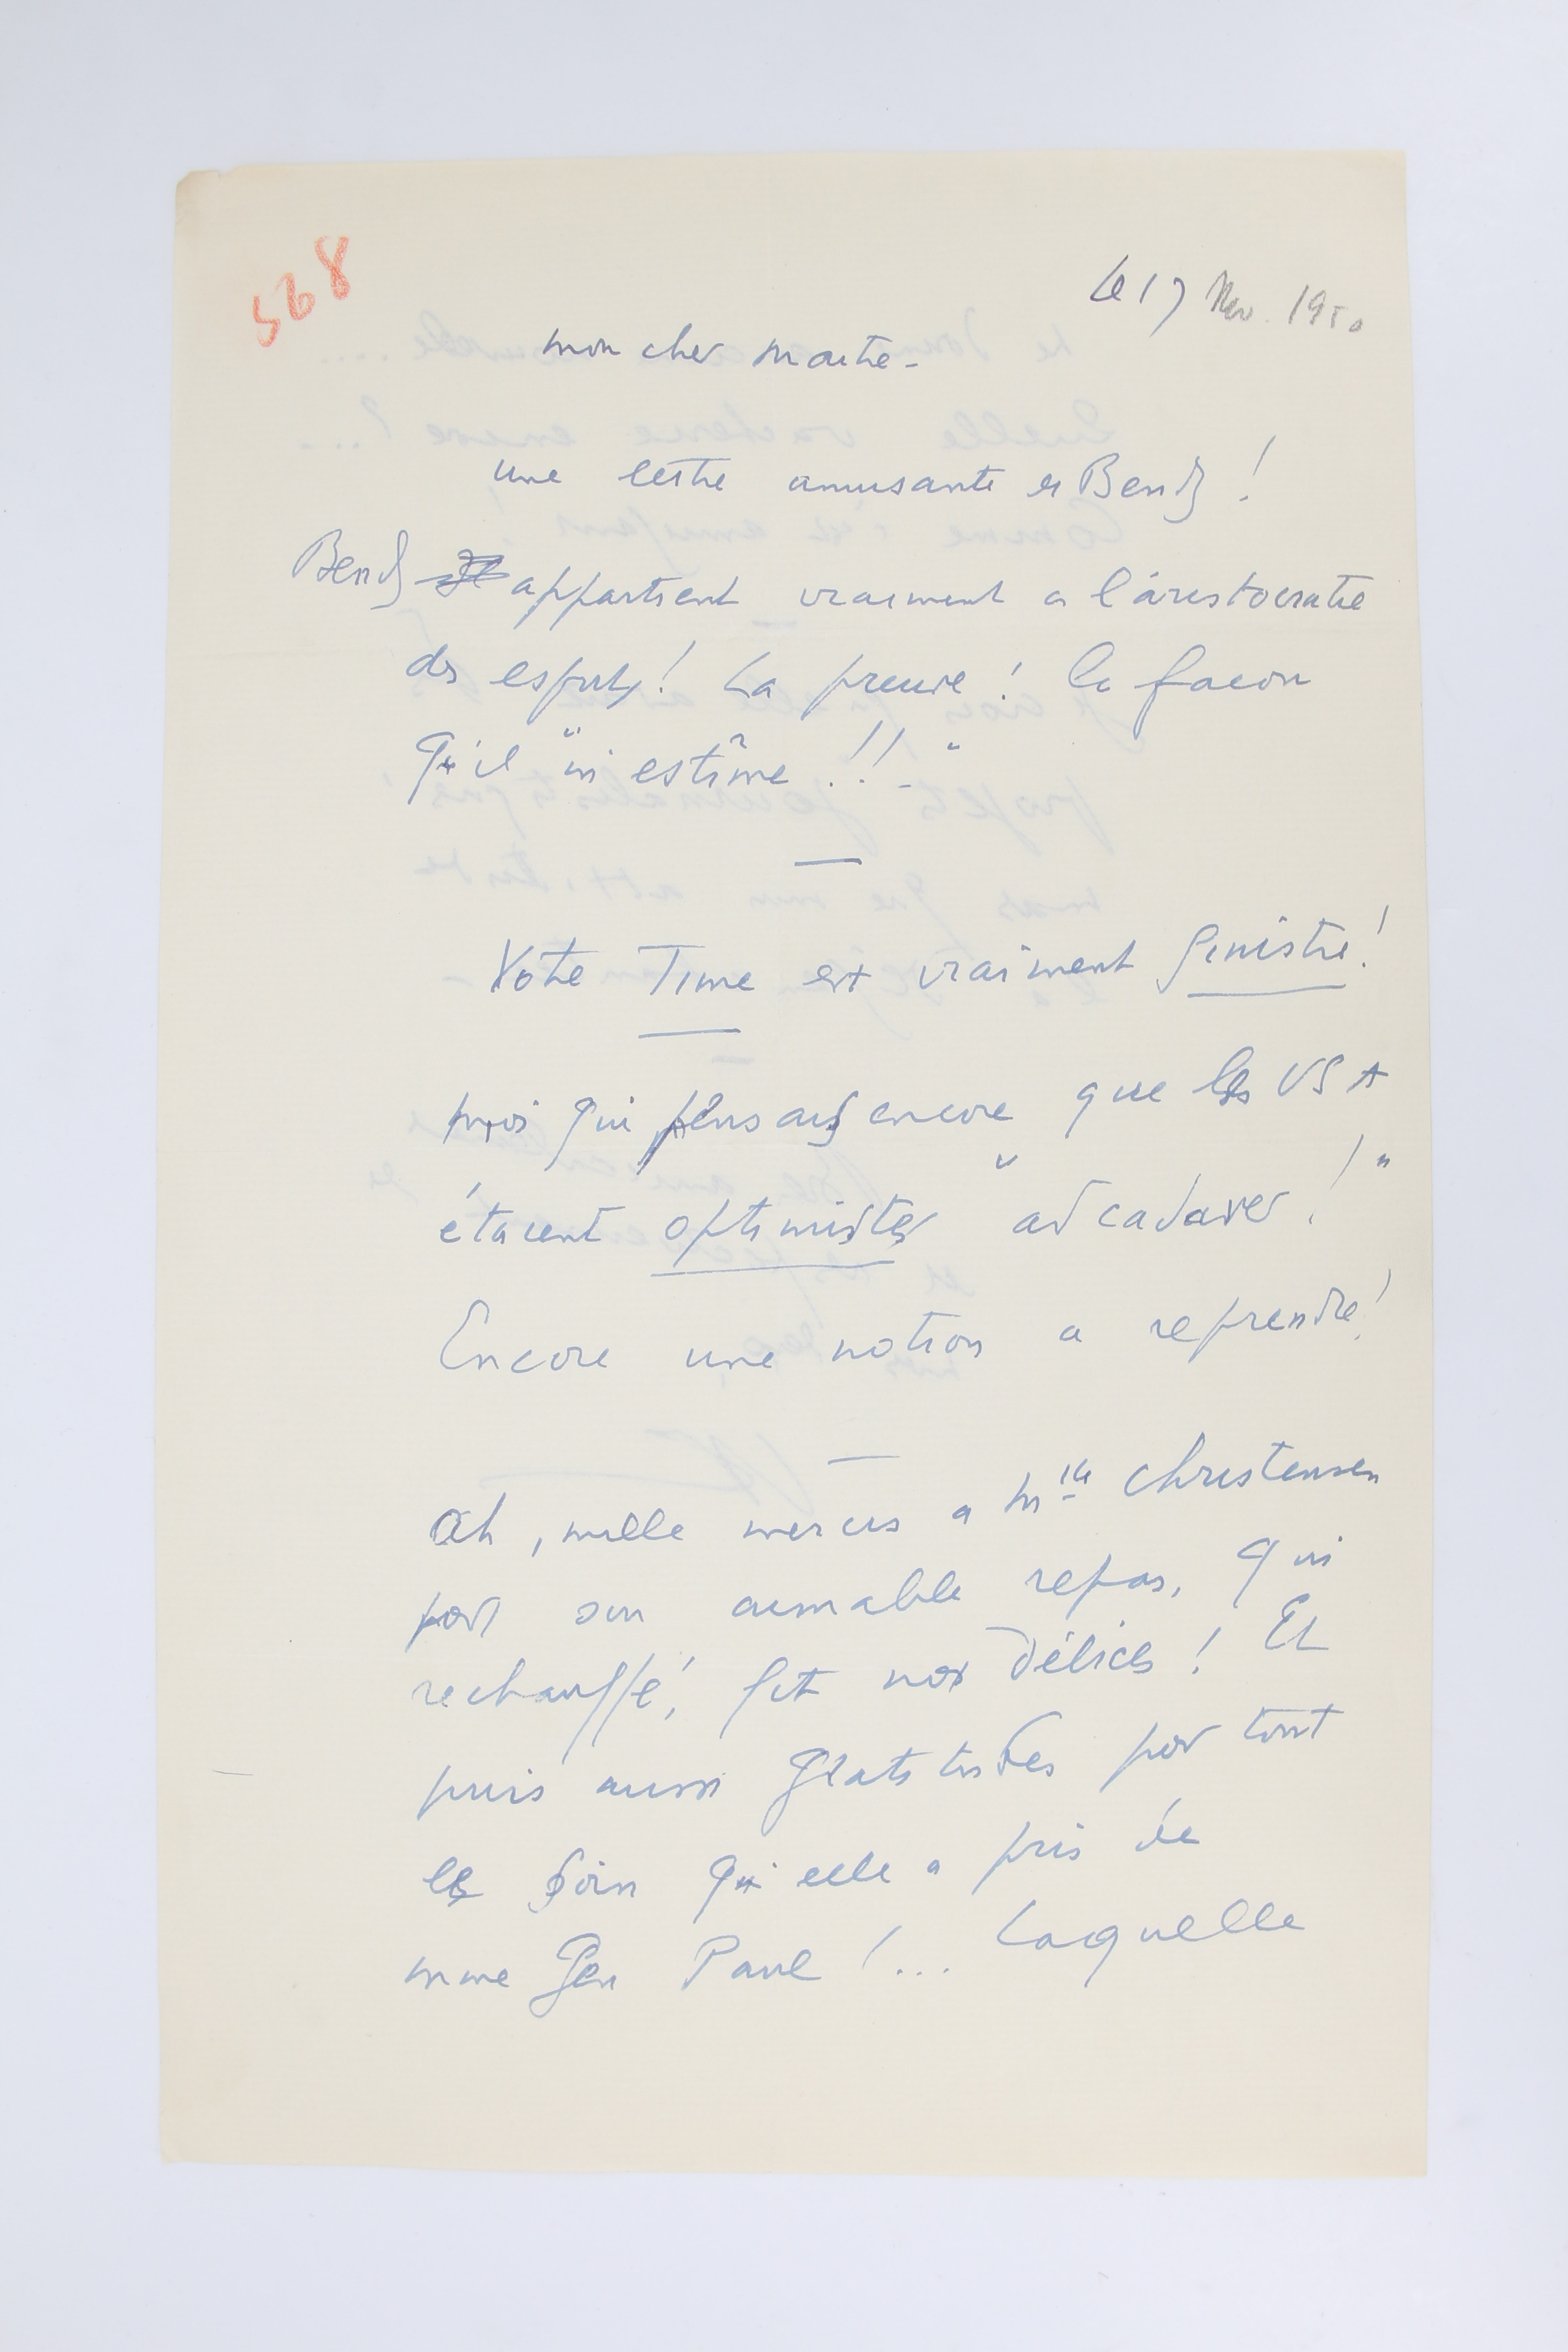 568
Le 17 Nov. 1950
Mon cher Maître -
Une lettre amusante de Bendz !
Bendz appartient vraiment à l'aristocratie
des esprits ! La preuve ! la façon
Qu'il "m'estime !! - "
Votre Time est vraiment sinistre !
Moi qui pensais encore que les USA
étaient optimistes "ad cadaver ! "
Encore une notion à reprendre !
Ah, mille mercis a Mlle Christensen
pour son aimable repas, qui
rechauffé, fit nos délices ! Et
puis aussi gratitudes pour tout
le soin qu'elle a pris de
Mme Gen Paul !... Laquelle